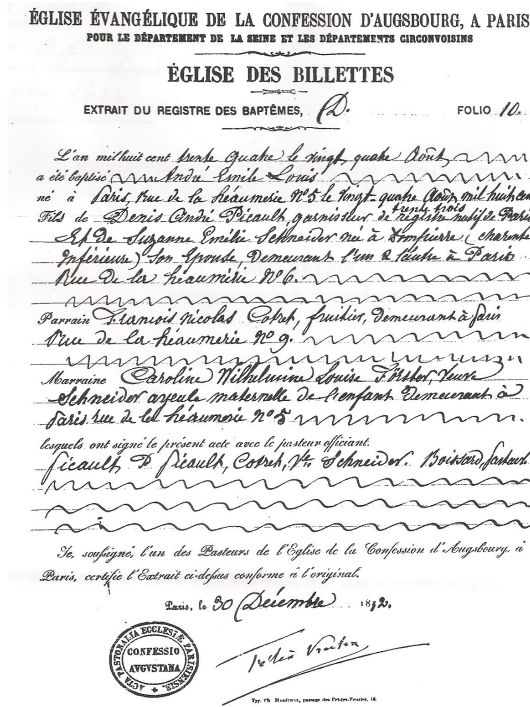 ÉGLISE ÉVANGÉLIQUE DE LA CONFESSION D'AUGSBOURG, A PARIS
POUR LE DÉPARTEMENT DE LA SEINE ET LES DÉPARTEMENTS CIRCONVOISINS
ÉGLISE DES BILLETTES
EXTRAIT DU REGISTRE DES BAPTÊMES, D. FOLIO 10.
L'an mil huit cent trente quatre le vingt quatre Août
a été baptisé André Emile Louis
né à Paris, rue de la héaumerie N° 5 le vingt-quatre Août mil huit cent
trente trois
Fils de Denis André Picault, garnisseur de registre natif de Paris
Et de Suzanne Emilie Schneider née à Dompierre (Charente
Inférieure) Son Epouse, Demeurant l'un & l'autre à Paris
Rue de la héaumerie N° 6.
Parrain François Nicolas Cotret, fruitier, Demeurant à Paris
rue de la héaumerie N° 9.
Marraine Caroline Wilhelmine Louise Förster, Veuve
Schneider ayeule maternelle de l'enfant Demeurant à
Paris rue de la héaumerie N° 5
lesquels ont signé le présent acte avec le pasteur officiant.
Picault D Picault, Cotret, Ve Schneider. Boissard, pasteur
Je, soussigné, l'un des Pasteurs de l'Eglise de la Confession d'Augsbourg, à
Paris, certifie l'Extrait ci-dessus conforme à l'original.
Paris, le 30 Décembre 1872.
ACTA PASTORALIA ECCLESIÆ PARISIENSIS.
CONFESSIO
AVGVSTANA